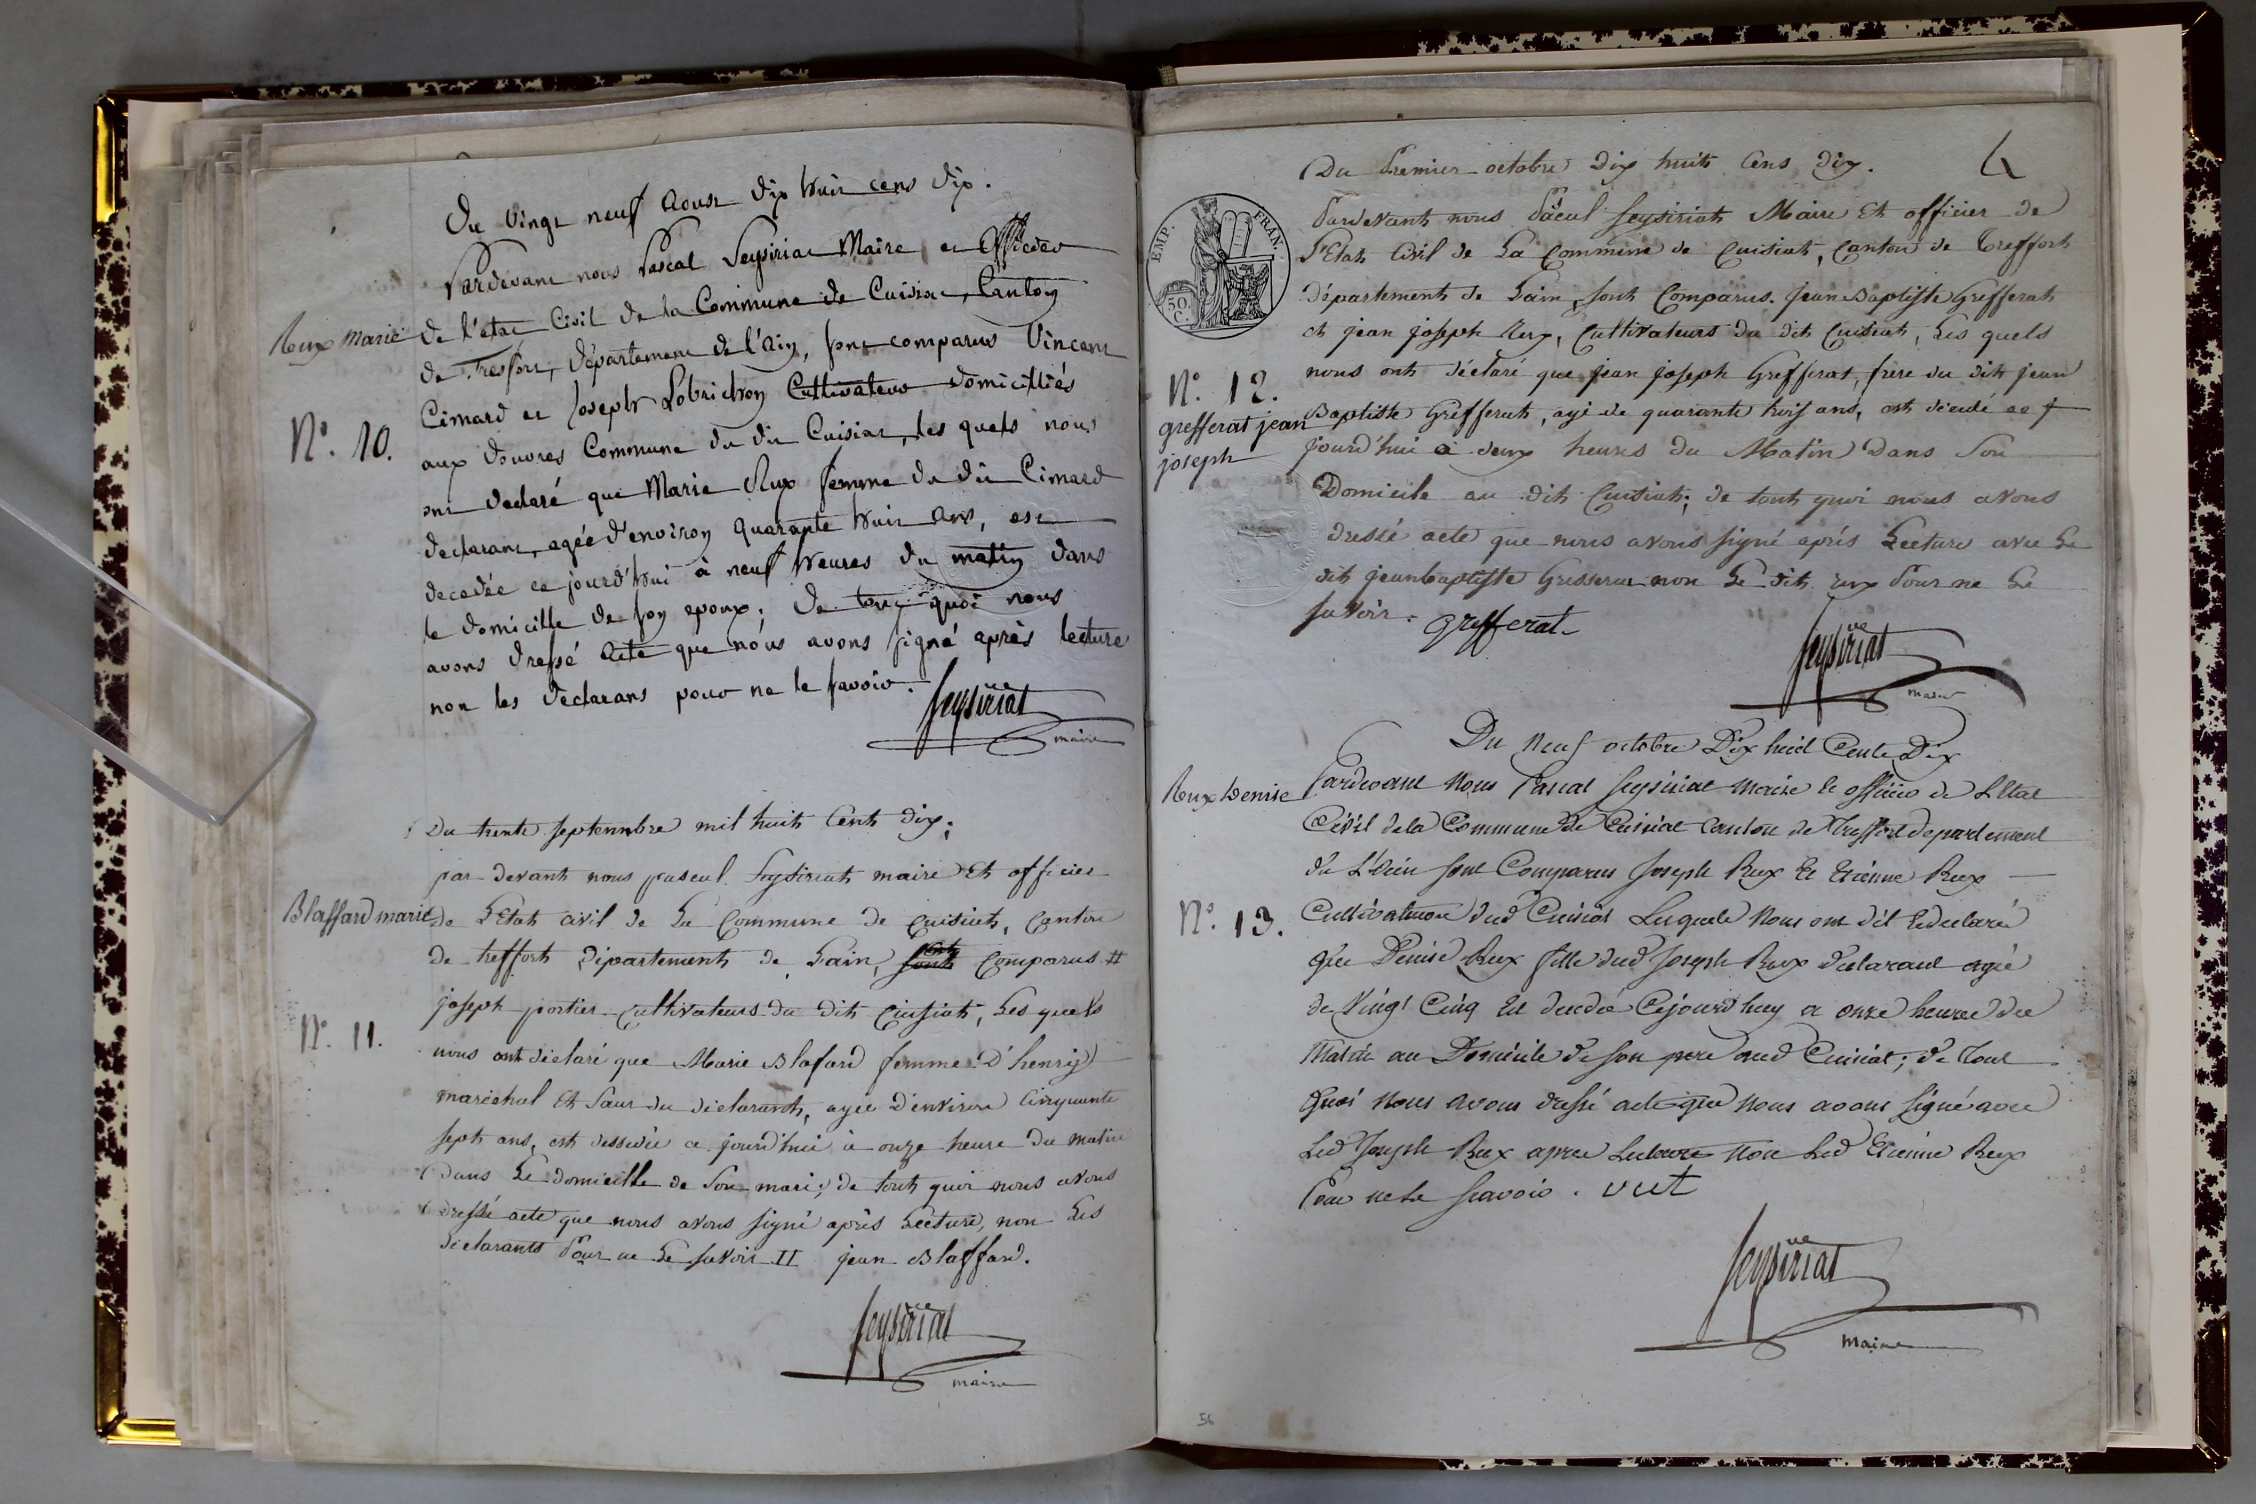 Du vingt neuf Aoust dix huit cens dix.
Pardevant nous Pascal Seysiriat Maire et Officier
Reux marie
de l'etat Civil de la Commune de Cuisiat, Canton
de Treffort, département de l'Ain, sont comparus Vincent
Cimard et Joseph Lobrichon Cultivateurs domicilliés
N.° 10.
aux douvres Commune du dit Cuisiat, les quels nous
ont declaré que Marie Rux femme du dit Cimard
declarant, agée d'environ quarante huit ans, est
decedée ce jourd'hui à neuf heures du matin dans
le domicille de son epoux; de tout quoi nous
avons dressé Acte que nous avons signé après lecture
non les declarans pour ne le savoir.
Seysiriat
maire
Du trente septembre mil huit Cent dix;
par devant nous pascal Seysiriat maire Et officier
Blaffard marie
de L'Etat civil de La Commune de Cuisiat, Canton
de treffort Département de Lain, sont comparus #
joseph portier cultivateurs du dit Cuisiat, Les quels
N.° 11.
nous ont déclaré que Marie Blafard femme D'henry
maréchal Et Sœur du déclarant, agée D'environ Cinquante
sept ans, est desedée ce jourd'hui à onze heure du matin
dans Le domicille de Son mari; de tout quoi nous avons
dressé acte que nous avons signé après Lecture, non Les
déclarants Pour ne Le savoir II jean Blaffard.
Seysiriat
maire
4
Du Premier octobre Dix huit Cens dix.
Pardevant nous Pascal Seysiriat Maire Et officier de
EMP. FRAN.
50. C.
L'Etat Civil de La Commune de Cuisiat, Canton de Treffort
Département de Lain, sont Comparus. Jean Baptiste Grefferat
et jean joseph Rux, Cultivateurs du dit Cuisiat, Les quels
nous ont déclaré que jean joseph Grefferat, frère du dit jean
N.° 12.
grefferat jean joseph
Baptiste Grefferat, agé de quarante trois ans, est décédé ce
jourd'hui à deux heures du Matin dans Son
Domicile au dit Cuisiat; de tout quoi nous avons
dressé acte que nous avons signé après Lecture avec Le
dit jean baptiste Grefferat non Le dit rux Pour ne Le
savoir. grefferat
Seysiriat
maire
Du Neuf octobre Dix huit Cents Dix
Reux Denise
Pardevant Nous Pascal Seysiriat Maire Et officier de L'Etat
Civil de la Commune de Cuisiat Canton de Treffort departement
de L'Ain sont Comparus Joseph Rux Et Etienne Rux
N.° 13.
Cultivateurs dud Cuisiat Lesquels Nous ont dit Et declaré
que Denise Rux fille dud Joseph Rux declarant agée
de Vingt Cinq Est decedée Cejourdhuy a onze heures du
Matin au Domicile de son pere aud Cuisiat; de Tout
Quoi Nous avons dressé acte que Nous avons signé avec
Led Joseph Rux apres Lecture Non Led Etienne Rux
Pour ne Le scavoir.
Seysiriat
maire
56